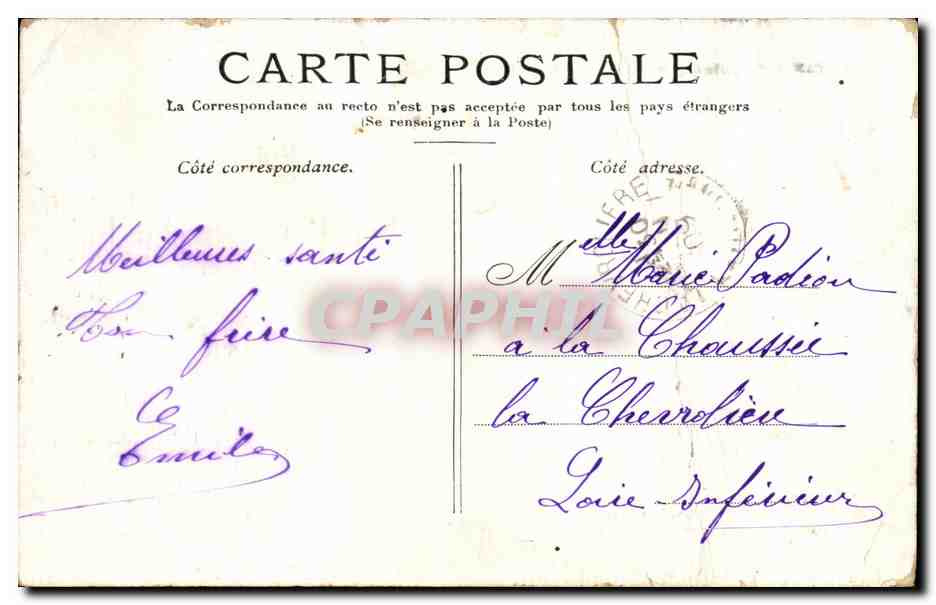 CARTE POSTALE
La Correspondance au recto n'est pas acceptée par tous les pays étrangers
(Se renseigner à la Poste)
Côté correspondance.
Meilleures santi
Ton frire
Emile
Côté adresse.
Melle Marie Padiou
à la Chaussée
la Chevrolieu
Loire-Inférieur
CPAPHIL